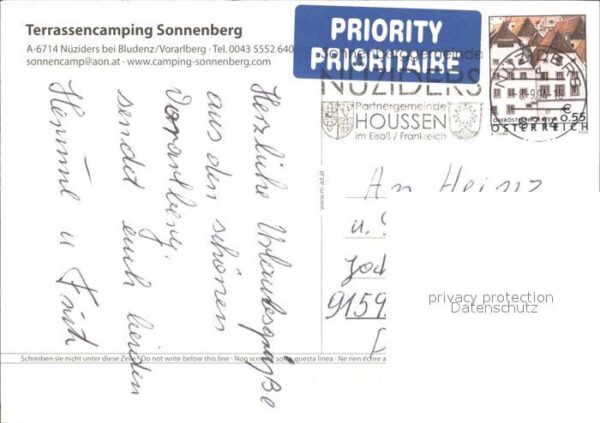 Terrassencamping Sonnenberg
A-6714 Nüziders bei Bludenz/Vorarlberg · Tel. 0043 5552 640
sonnencamp@aon.at · www.camping-sonnenberg.com
PRIORITY
PRIORITAIRE
NÜZIDERS
Partnergemeinde
HOUSSEN
im Elsaß / Frankreich
€ 0,55
ÖSTERREICH
Herzliche Urlaubsgrüße
aus den schönen
Vorarlberg,
sendet euch beiden
u
www.m-ad.at
An Heinz
u.
Joch
9159
D
privacy protection
Datenschutz
Schreiben sie nicht unter diese Zeile · Do not write below this line · Non scrivere sotto questa linea · Ne rien écrire a